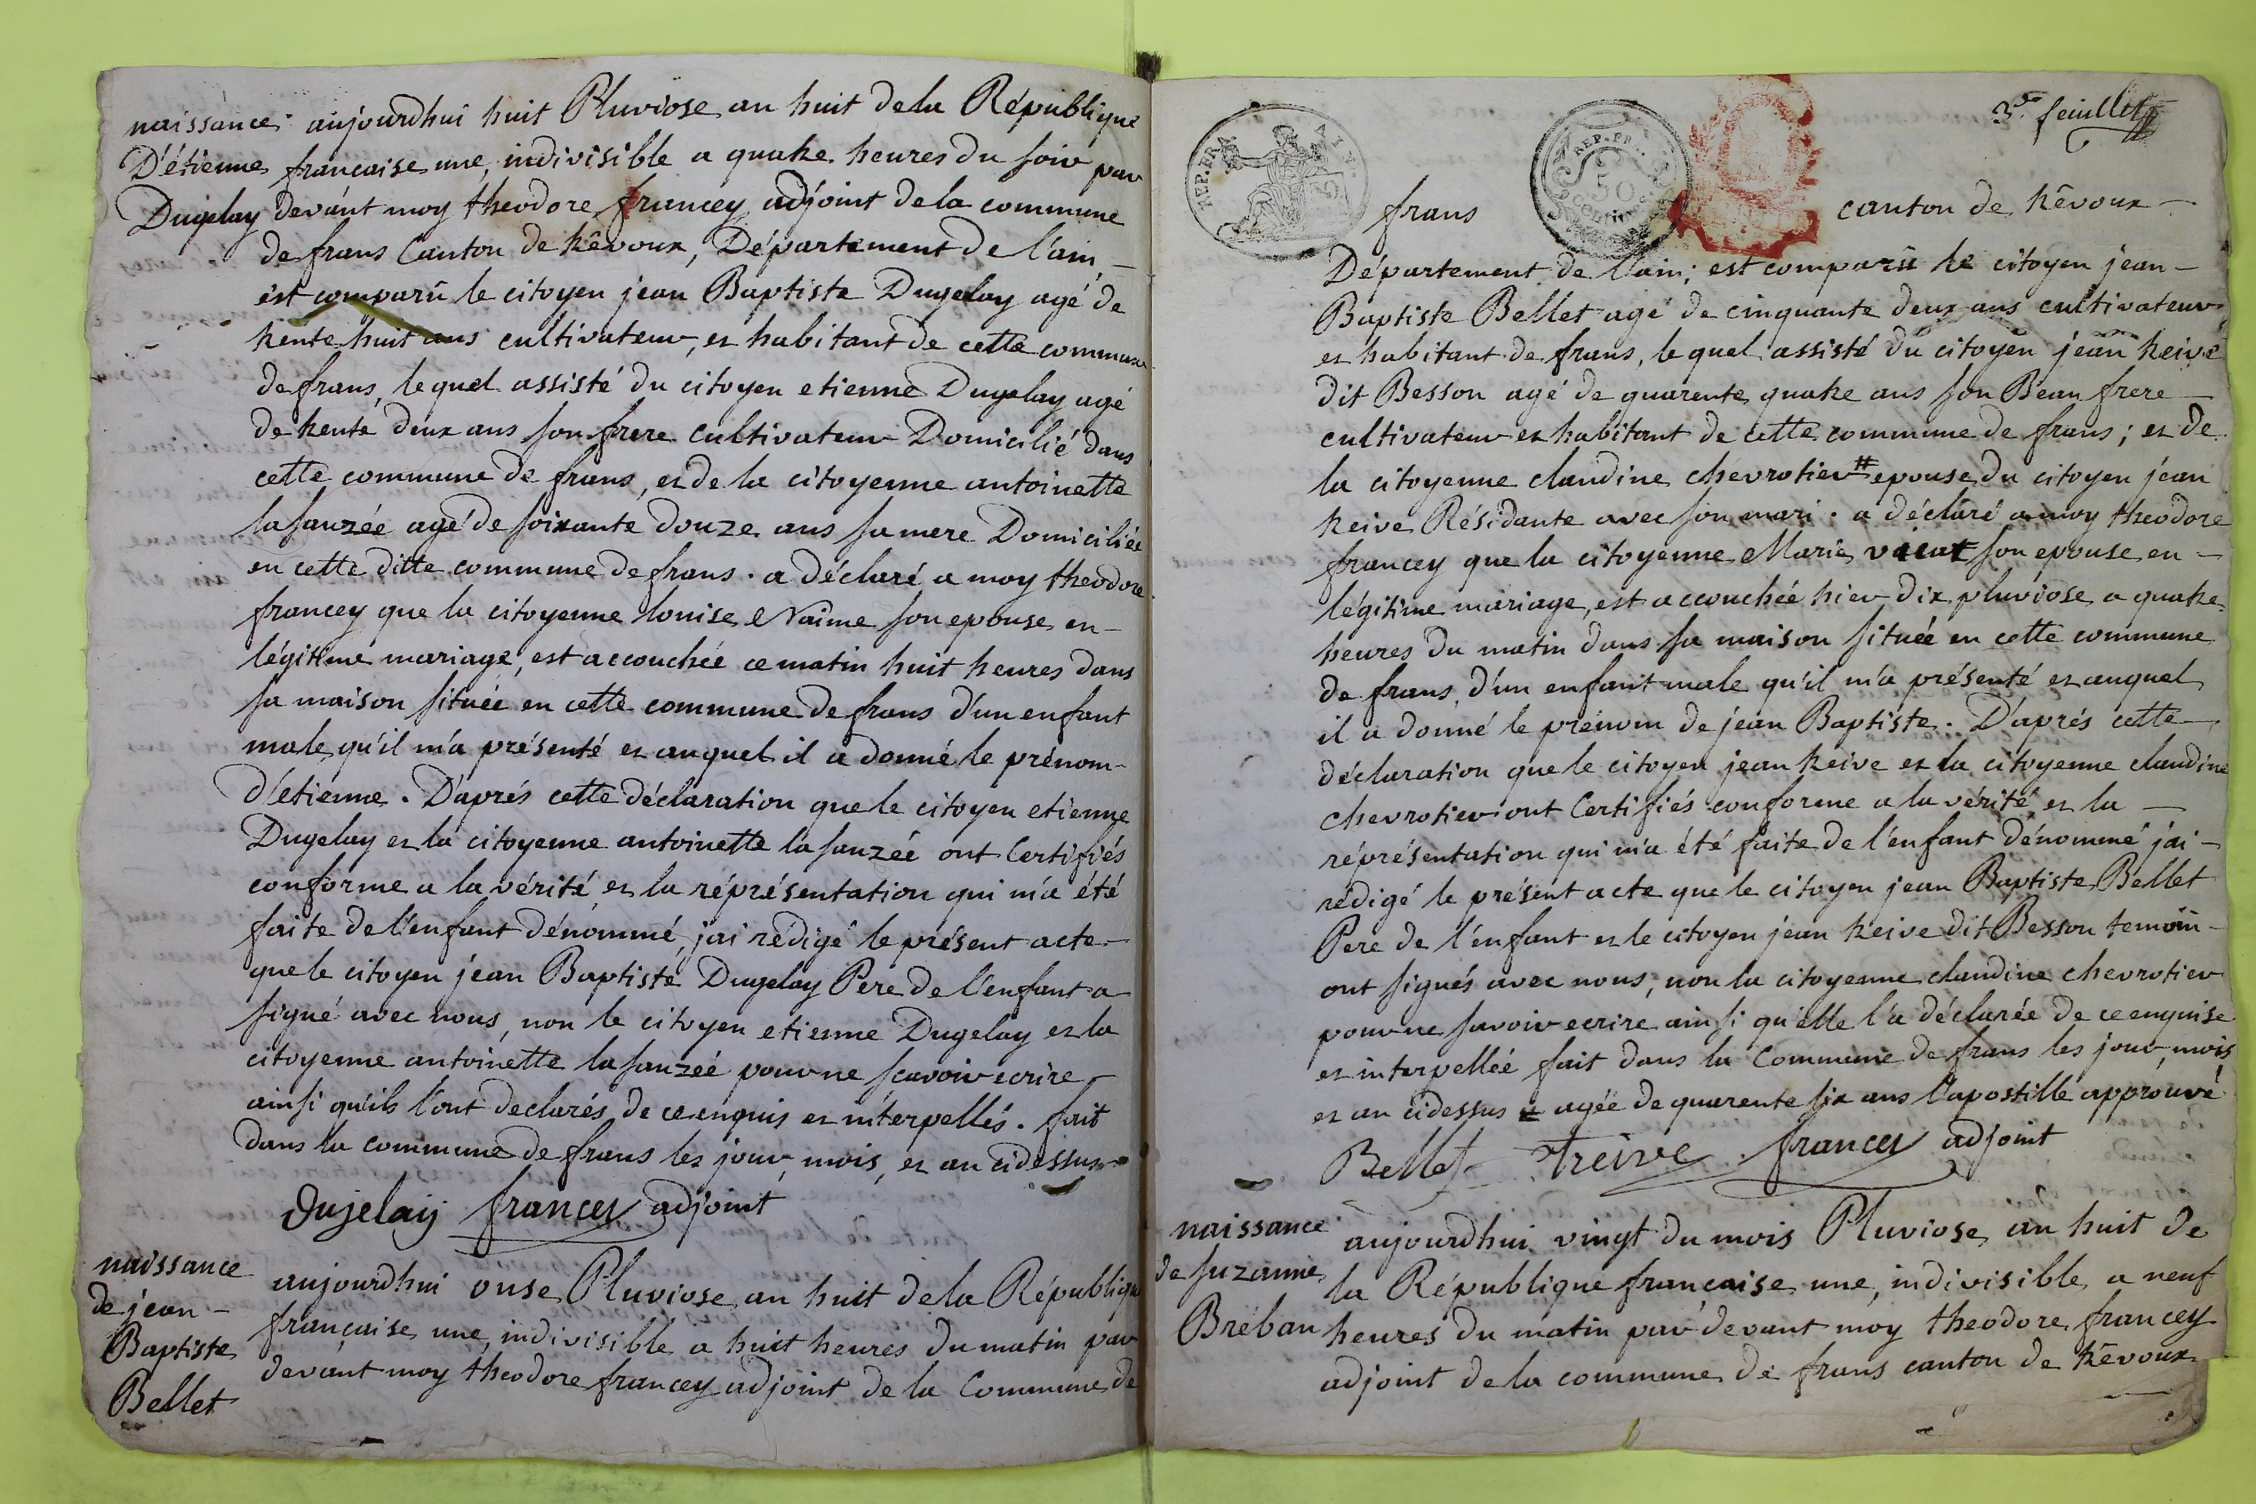 naissance
D'étienne
Dugelay
aujourdhui huit Pluviose an huit de la République
française une, indivisible a quatre heures du soir par
devant moy theodore francey adjoint de la commune
de frans Canton de trêvoux, Département de l'ain,
est comparû le citoyen jean Baptiste Dugelay agé de
trente huit ans cultivateur, et habitant de cette commune
de frans, le quel assisté du citoyen etienne Dugelay agé
de trente deux ans son frere cultivateur Domicilié dans
cette commune de frans, et de la citoyenne antoinette
lasauzée agé de soixante douze ans sa mere Domiciliée
en cette ditte commune de frans. a déclaré a moy theodore
francey que la citoyenne louise Naime son epouse en-
légitime mariage, est accouchée ce matin huit heures dans
sa maison située en cette commune de frans d'un enfant
male qu'il m'a présenté et auquel il a donné le prénom-
d'étienne. D'aprés cette déclaration que le citoyen etienne
Dugelay et la citoyenne antoinette lasauzée ont Certifiés
conforme a la vérité et la réprésentation qui m'a été
faite de l'enfant dénommé, jai rédigé le présent acte-
que le citoyen jean Baptiste Dugelay Pere de l'enfant a
signé avec nous, non le citoyen etienne Dugelay et la
citoyenne antoinette lasauzée pour ne scavoir ecrire
ainsi qu'ils l'ont declarés de ce enquis et interpellés. fait
dans la commune de frans les jour, mois, et an cidessus
Dujelaij francey adjoint
naissance
de jean-
Baptiste
Bellet
aujourdhui onse Pluviose an huit de la République
française une, indivisible a huit heures du matin par
devant moy theodore francey adjoint de la Commune de
3e. feuillet
REP. FRA.
REP. FR.
50
centimes
frans canton de trêvoux-
Département de l'ain; est comparû le citoyen jean-
Baptiste Bellet agé de cinquante deux ans cultivateur
et habitant de frans, le quel assisté du citoyen jean treive
dit Besson agé de quarente quatre ans son Beau frere
cultivateur et habitant de cette commune de frans; et de
la citoyenne claudine chevrotier # epouse du citoyen jean
treive Résidante avec son mari. a déclaré a moy theodore
francey que la citoyenne Marie son epouse en-
légitime mariage, est accouchée hier dix pluviose a quatre
heures du matin dans sa maison située en cette commune
de frans, d'un enfant male qu'il m'a présenté et auquel
il a donné le prénom de jean Baptiste. D'aprés cette-
déclaration que le citoyen jean treive et la citoyenne claudine
chevrotier ont Certifiés conforme a la vérité et la -
réprésentation qui m'a été faite de l'enfant dénommé jai-
rédigé le présent acte que le citoyen jean Baptiste Bellet
Pere de l'enfant et le citoyen jean treive dit Besson temoin-
ont signés avec nous, non la citoyenne claudine chevrotier
pour ne savoir ecrire ainsi qu'elle l'a déclarée de ce enquise
et interpellée fait dans la Commune de frans les jour, mois
et an cidessus # agée de quarente six ans l'apostille approuvé
Bellet Treive francey adjoint
naissance
de suzanne
Breban
aujourdhui vingt du mois Pluviose an huit de
la République française une, indivisible a neuf
heures du matin par devant moy theodore francey
adjoint de la commune de frans canton de trêvoux